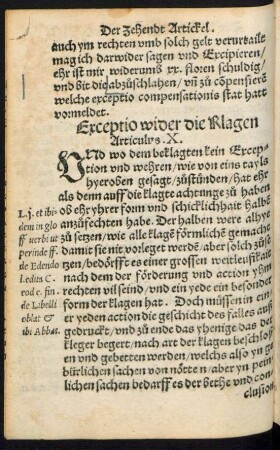 Der Zehendt Artickel.
auch ym rechten vmb solch gelt verursaile
mag ich darwider sagen vnd Excipieren/
ehr ist mir widerumb xx. floren schuldig/
vnd bit die abzüschlahen/ vñ zů cōpensierē
welche exceptio compensationis stat hatt
vormeldet.
Exceptio wider die Klagen
Articulus .X.
Vnd wo dem beklagten kein Excep-
tion vnd wehren/ wie von eins tayls
hyeroben gesagt/ zůstünden/ hat ehr
als denn auff die klagte achtunge zu haben
ob ehr yhrer form vnd schicklichhait halben
anzůfechten habe. Der halben were alhye
zů setzen/ wie alle klagē förmlichē gemacht
damit sie nit voleget werde/ aber solch zůse-
tzen/ bedörfft es einer grossen weitleufikait
nach dem der förderung vnd action yhm
rechten vil seind/ vnd ein yede ein besonder
form der klagen hat. Doch müssen in ein-
er yeden action die geschicht des falles auß
gedruckt/ vnd zů ende das yhenige das der
kleger begert/ nach art der klagen beschlos-
sen vnd gebetten werden/ welchs also yn ge
bürlichen sachen von nötten/ aber yn pein
lichen sachen bedarff es der bethe vnd con
clusion
L. j. et ibi-
dem in glo
ff verbi ut
perinde ff.
de Edendo
l. edita C.
eod e. fin.
de Libelli
oblat &
ibi Abbas.